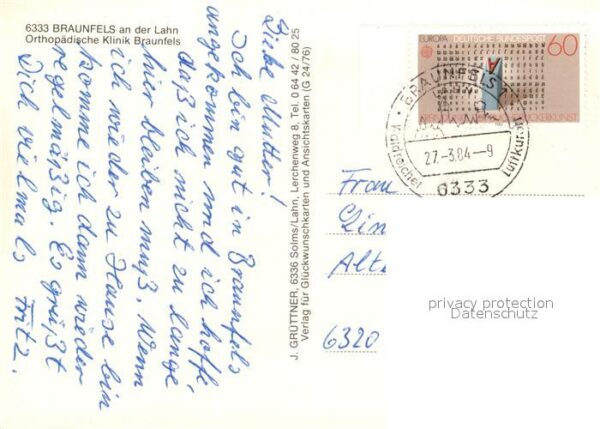 6333 BRAUNFELS an der Lahn
Orthopädische Klinik Braunfels
Liebe Mutter!
Ich bin gut in Braunfels
angekommen und ich hoffe,
daß ich nicht zu lange
hier bleiben muß. Wenn
ich wieder zu Hause bin
komme ich dann wieder
regelmäßig. Es grüßt
Dich vielmals Fritz.
J. GRÜTTNER, 6336 Solms/Lahn, Lerchenweg 8, Tel. 0 64 42 / 80 25
Verlag für Glückwunschkarten und Ansichtskarten (G 24/76)
EUROPA DEUTSCHE BUNDESPOST 60
BRAUNFELS
Heilklimatischer Luftkurort
27.-3.84-9
6333
Frau
Lin
Alt.
6320
privacy protection
Datenschutz